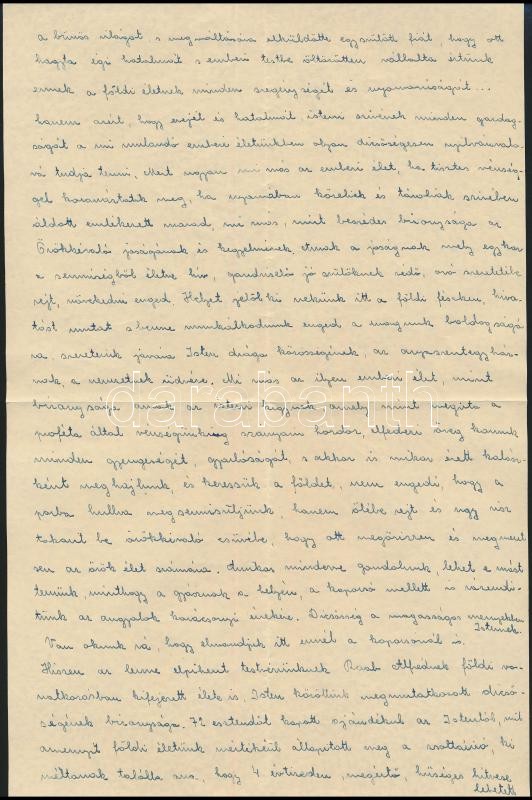 a bűnös világot s megváltására elküldötte egyszülött fiát, hogy ott
hagyta égi hatalmát s emberi testbe öltözötten vállalta értünk
ennek a földi életnek minden szegénységét és nyomorúságát...
hanem azért, hogy erejét és hatalmát, isteni szívének minden gazdag-
ságát a mi mulandó emberi életünkben olyan dicsőségesen nyilvánvaló-
vá tudja tenni. Mert ugyan mi más az emberi élet, ha tisztes vénség-
gel koronáztatik meg, ha nyomában közeliek és távoliak szívében
áldott emlékezett marad, mi más, mint beszédes bizonysága az
Örökkévaló jóságának és kegyelmének, annak a jóságnak mely egykor
a semmiségből életre hív, gondviselő jó szülőknek védő, óvó szeretetébe
rejt, növekedni enged. Helyet jelöl ki nekünk itt a földi fészken, hiva-
tást mutat s benne munkálkodnunk enged a magunk boldogságá
ra, szeretteink javára Isten drága közösségének, az anyaszentegyház-
nak, a nemzetnek üdvére. Mi más az ilyen emberi élet, mint
bizonysága annak az isteni kegynek, amely mint megírta a
proféta által vénségünkig szárnyain hordoz, elfedezi öreg korunk
minden gyengeségét, gyarlóságát, s akkor is mikor érett kalász-
ként meghajlunk, és keressük a földet, nem engedi, hogy a
porba hullva megsemmisüljünk, hanem ölébe rejt és úgy visz
takarit be örökkévaló csűrébe, hogy ott megőrizzen és megment
sen az örök élet számára. Amikor mindezre gondolunk, lehet e mást
tennünk, minthogy a gyásznak a helyén, a koporsó mellett is rázendí-
tünk az angyalok karácsonyi énekére. Dicsőség a magasságos mennyekben
Istennek.
Van okunk rá, hogy elmondjuk itt ennél a koporsónál is.
Hiszen az benne elpihent testvérünknek Raab Alfrédnek földi vo-
natkozásban kifejezett élete is, Isten közöttünk megmutatkozott dicső-
ségének bizonysága. 72 esztendőt kapott ajándékul az Istentől, mit
amennyit földi életünk mértékéül állapított meg a zsoltáríró, ki
méltónak találta arra, hogy 4 évtizeden, megértő, hűséges hitvese
lehetett
darabanth